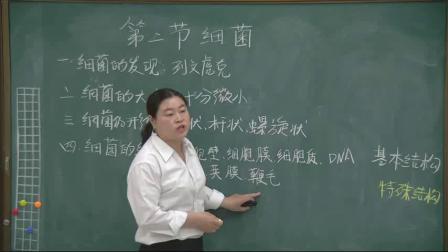 第二节 细菌
一.细菌的发现:列文虎克
二.细菌的大 十分微小
三.细菌的形 状、杆状、螺旋状
四.细菌的 胞壁、细胞膜、细胞质、DNA 基本结构
荚膜 鞭毛 特殊结构